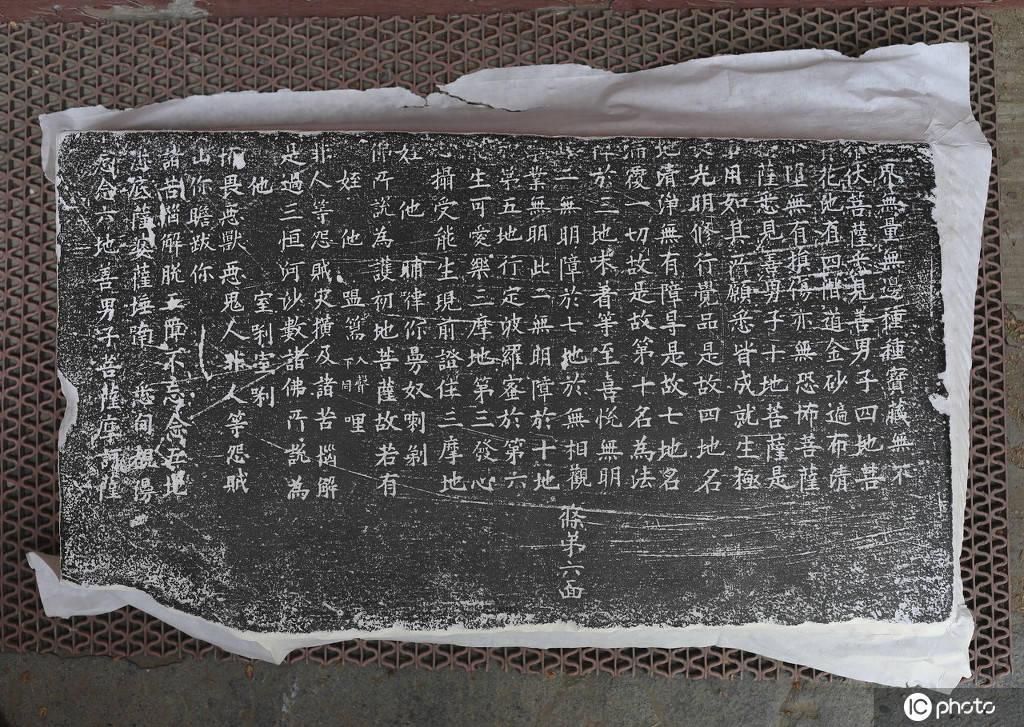 界無量無邊種種寶藏無不
伏菩薩悉見善男子四地菩
花池有四階道金砂遍布清
墮無有損傷亦無恐怖菩薩
薩悉見善男子十地菩薩是
用如其所願悉皆成就生極
光明修行覺品是故四地名
地清淨無有障导是故七地名
覆一切故是故第十名為法
於三地味著等至喜悅無明
二無明障於七地於無相觀
條苐六面
業無明此二無明障於十地
苐五地行定波羅蜜於第六
生可愛樂三摩地第三發心
攝受能生現前證住三摩地
他 晡律你鼻奴喇剃
所說為護初地菩薩故若有
姪 他 嗢篤 入聲下同 哩
非人等怨賊灾橫及諸苦惱解
是過三恒河沙數諸佛所說為
他 室利室利
畏惡獸惡鬼人非人等怨賊
你瞻跋你
諸苦惱解脫 障不忘念五地
薩婆薩埵
念六地善男子菩薩摩訶薩
IC photo